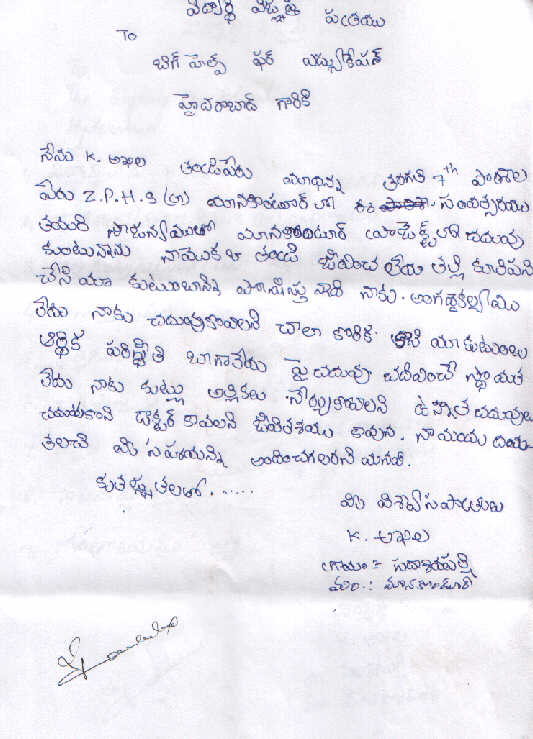 విద్యార్థి విజ్ఞప్తి పత్రము
To
బిగ్ హెల్ప్ ఫర్ ఎడ్యుకేషన్
హైదరాబాద్ గారికి
నేను K. అఖిల తండ్రిపేరు తరగతి 7th పాఠశాల
పేరు Z.P.H.S (గా) మానకొండూర్ లో ఈ సంవత్సరము
మానకొండూర్ లో చదువు
కుంటున్నాను నాయొక్క తండ్రి జీవించి లేడు తల్లి కూలిపని
చేసి మా కుటుంబాన్ని పోషిస్తున్నాది నాకు. అంగవైకల్యము
లేదు నాకు చదువుకోవాలని చాలా కోరిక. కాని మా కుటుంబ
ఆర్థిక పరిస్థితి బాగాలేదు పై చదువు చదివించే స్థోమత
లేదు నాకు కుట్లు అల్లికలు నేర్చుకోవాలని ఉన్నత చదువులు
చదువుకొని డాక్టర్ కావాలని జీవితాశయం కావున. నాయందు దయ
తలచి మీ సహాయాన్ని అందించగలరని మనవి.
కృతజ్ఞతలతో......
మీ విశ్వాసపాత్రులు
K. అఖిల
గ్రామం : సదాశివపల్లి
మం.: మానకొండూర్